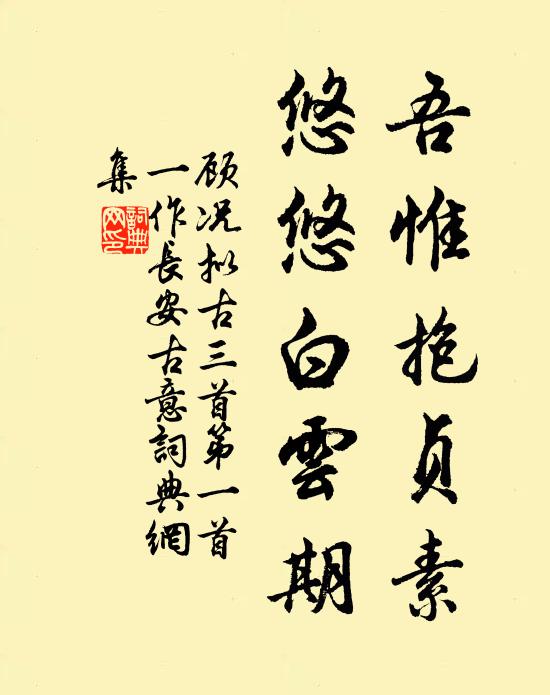 吾惟抱贞素
悠悠白雲期
顾况拟古三首第一首
一作長安古意詞典網
集
詞典網印